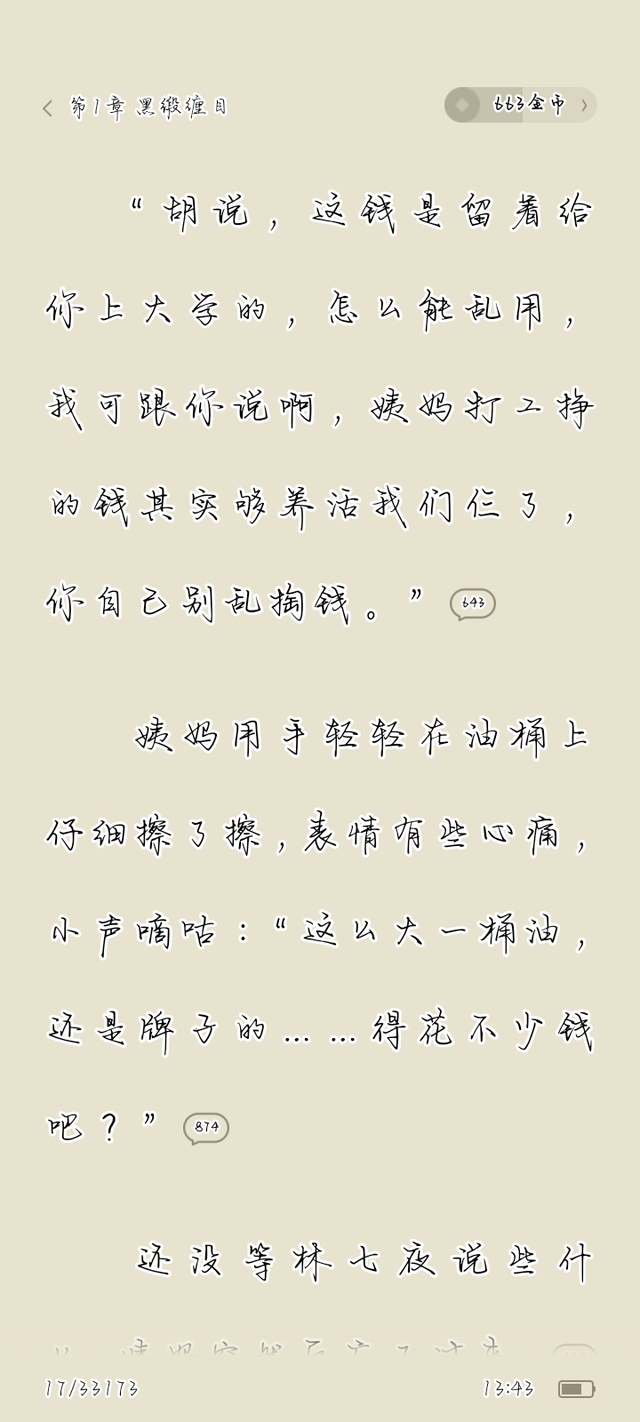 第1章 黑缎缠目
663金币
“胡说，这钱是留着给
你上大学的，怎么能乱用，
我可跟你说啊，姨妈打工挣
的钱其实够养活我们仨了，
你自己别乱掏钱。”
643
姨妈用手轻轻在油桶上
仔细擦了擦，表情有些心痛，
小声嘀咕：“这么大一桶油，
还是牌子的……得花不少钱
吧？”
874
还没等林七夜说些什
17/33173
13:43